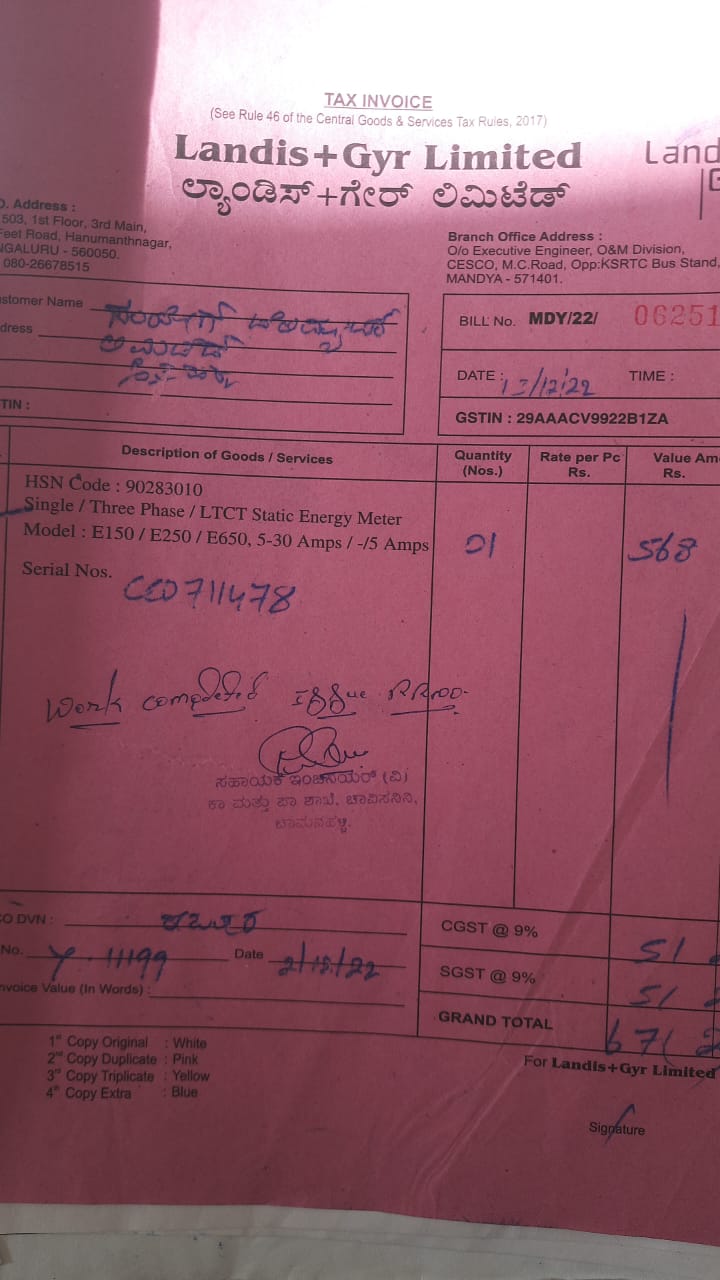 TAX INVOICE
(See Rule 46 of the Central Goods & Services Tax Rules, 2017)
Landis+Gyr Limited
Land
ಲ್ಯಾಂಡಿಸ್+ಗೇರ್ ಲಿಮಿಟೆಡ್
D. Address :
503, 1st Floor, 3rd Main,
Feet Road, Hanumanthnagar,
NGALURU - 560050.
080-26678515
Branch Office Address :
O/o Executive Engineer, O&M Division,
CESCO, M.C.Road, Opp:KSRTC Bus Stand,
MANDYA - 571401.
stomer Name
dress
ಲಿಮಿಟೆಡ್
TIN :
BILL No. MDY/22/ 06251
DATE : 13/12/22 TIME :
GSTIN : 29AAACV9922B1ZA
Description of Goods / Services
Quantity (Nos.)
Rate per Pc Rs.
Value Am Rs.
HSN Code : 90283010
Single / Three Phase / LTCT Static Energy Meter
Model : E150 / E250 / E650, 5-30 Amps / -/5 Amps 01 568
Serial Nos.
711478
Work completed
ಸಹಾಯಕ ಇಂಜಿನಿಯರ್ (ವಿ)
ಕಾ ಮತ್ತು ಪಾ ಶಾಖೆ, ಚಾವಿಸನಿನಿ,
O DVN :
No. Y-11199 Date 2/12/22
nvoice Value (In Words) :
CGST @ 9% 51
SGST @ 9% 51
GRAND TOTAL 671
1st Copy Original : White
2nd Copy Duplicate : Pink
3rd Copy Triplicate : Yellow
4th Copy Extra : Blue
For Landis+Gyr Limited
Signature